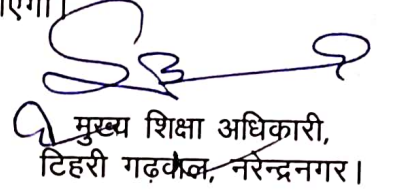 मुख्य शिक्षा अधिकारी,
टिहरी गढ़वाल, नरेन्द्रनगर।